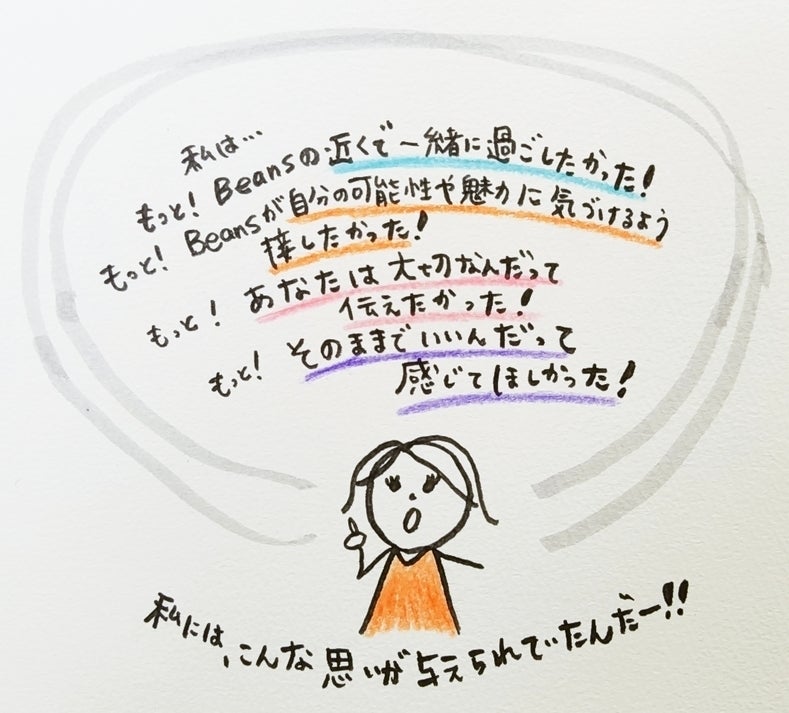 私は…
もっと! Beansの近くで一緒に過ごしたかった!
もっと! Beansが自分の可能性や魅力に気づけるよう
接したかった!
もっと! あなたは大切なんだって
伝えたかった!
もっと! そのままでいいんだって
感じてほしかった!
私には、こんな思いが与えられていたんだー!!